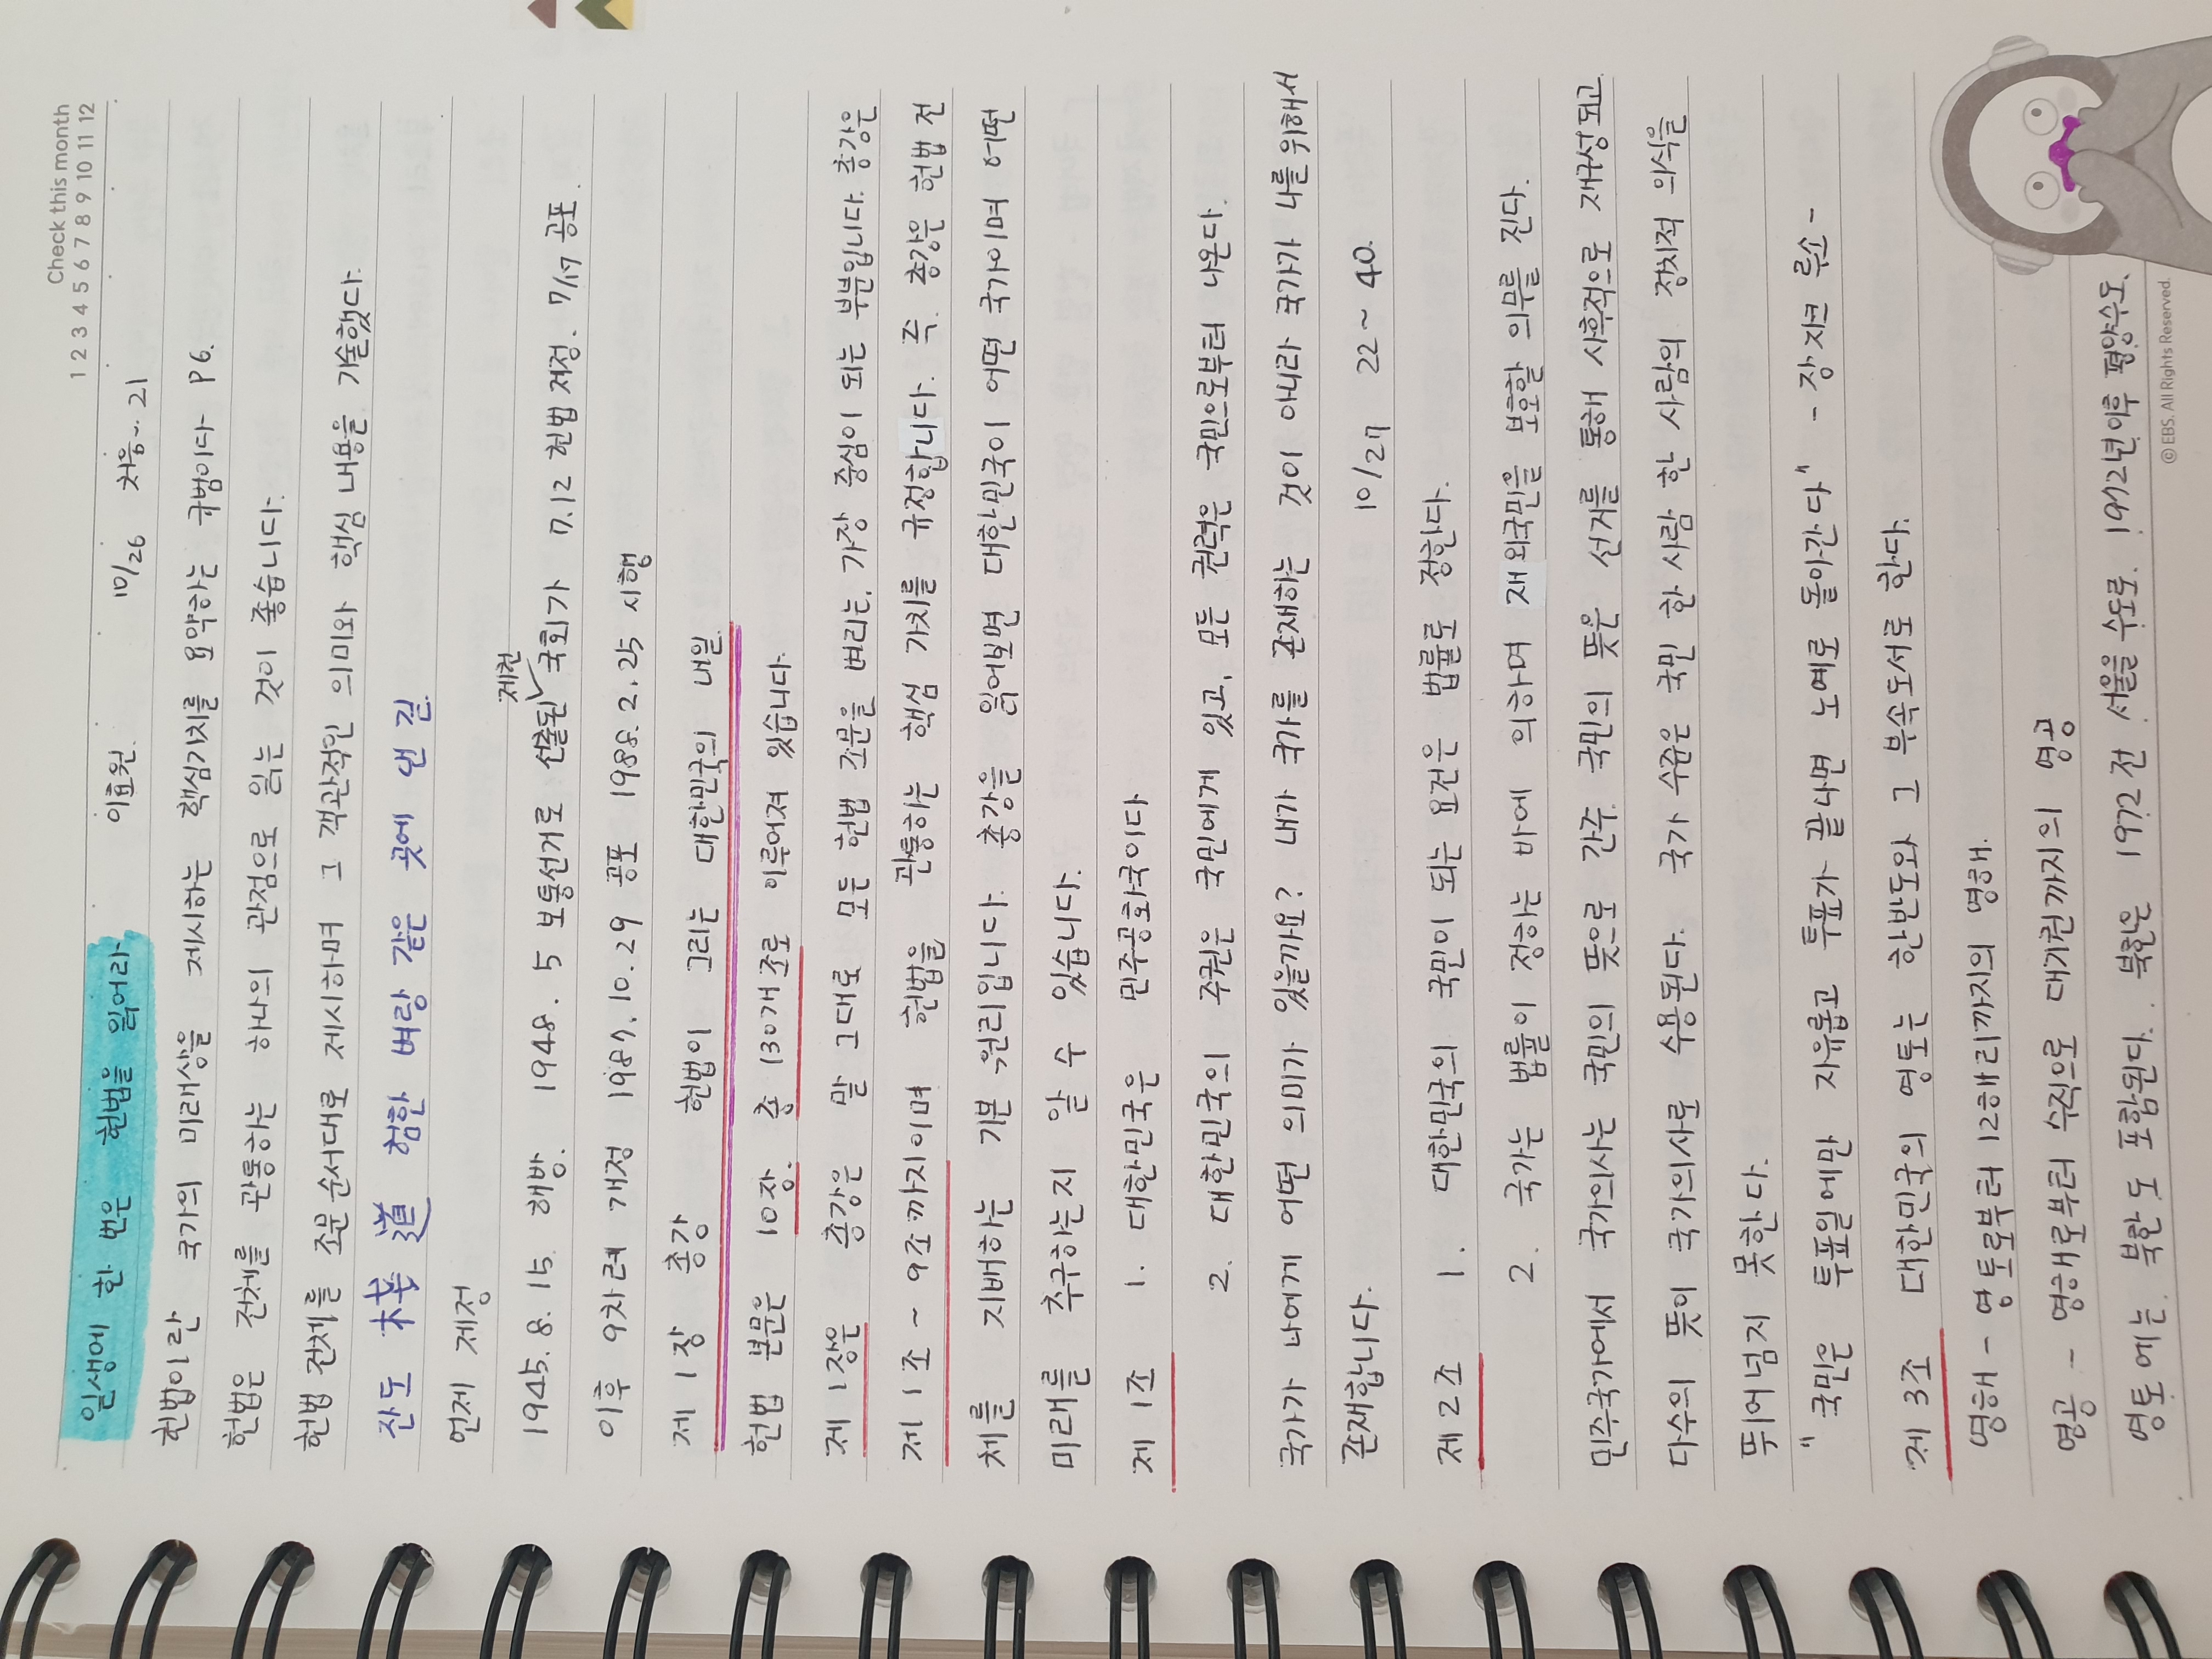 Check this month
1 2 3 4 5 6 7 8 9 10 11 12
일생에 한 번은 헌법을 읽어라 이효원. 10/26 처음~21
헌법이란 국가의 미래상을 제시하는 핵심가치를 요약하는 규범이다 P 6.
헌법은 전체를 관통하는 하나의 관점으로 읽는 것이 좋습니다.
헌법 전체를 조문 순서대로 제시하며 그 객관적인 의미와 핵심 내용을 기술했다.
잔도 栈道 험한 벼랑 같은 곳에 낸 길.
언제 제정
제헌
1945. 8. 15 해방. 1948. 5 보통선거로 선출된 국회가 7.12 헌법 제정. 7/17 공포.
이후 9차례 개정 1987. 10. 29 공포 1988. 2. 25 시행
제 1 장 총강 헌법이 그리는 대한민국의 내일.
헌법 본문은 10장. 총 130개 조로 이루어져 있습니다.
제 1장은 총강은 말 그대로 모든 헌법 조문을 벼리는, 가장 중심이 되는 부분입니다. 총강은
제 1 조 ~ 9조 까지이며 헌법을 관통하는 핵심 가치를 규정합니다. 즉. 총강은 헌법 전
체를 지배하는 기본 원리입니다. 총강을 읽어보면 대한민국이 어떤 국가이며 어떤
미래를 추구하는지 알 수 있습니다.
제 1조 1. 대한민국은 민주공화국이다
2. 대한민국의 주권은 국민에게 있고, 모든 권력은 국민으로부터 나온다.
국가가 나에게 어떤 의미가 있을까요? 내가 국가를 존재하는 것이 아니라 국가가 나를 위해서
존재합니다. 10/27 22 ~ 40.
제 2조 1. 대한민국의 국민이 되는 요건은 법률로 정한다.
2. 국가는 법률이 정하는 바에 의하며 재외국민을 보호할 의무를 진다.
민주국가에서 국가의사는 국민의 뜻으로 간주. 국민의 뜻은 선거를 통해 사후적으로 재구성되고
다수의 뜻이 국가의사로 수용된다. 국가 수준은 국민 한 사람 한 사람의 정치적 의식을
뛰어넘지 못한다.
" 국민은 투표일에만 자유롭고 투표가 끝나면 노예로 돌아간다" - 장 자크 루소 -
제 3조 대한민국의 영토는 한반도와 그 부속도서로 한다.
영해 - 영토로부터 12해리까지의 영해.
영공 - 영해로부터 수직으로 대기권까지의 영공
영토에는 북한도 포함된다. 북한은 1972 전 서울을 수도로. 1972년 이후 평양수도.
© EBS. All Rights Reserved.